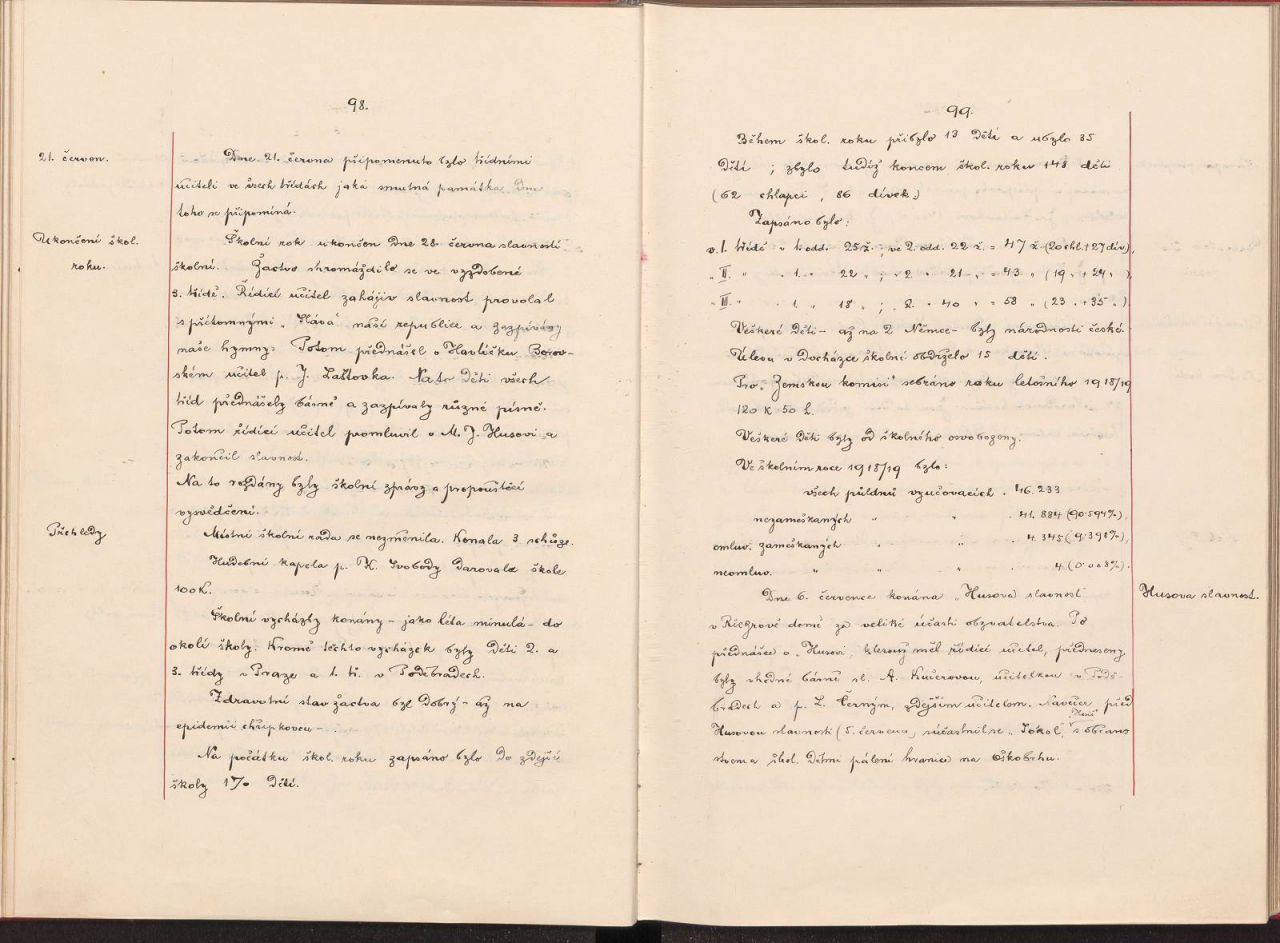 98.
21. červen.
Dne 21. června připomenuto bylo třídními
učiteli ve všech třídách jaká smutná památka Dne
toho se připomíná.
Ukončení škol.
roku.
Školní rok ukončen Dne 28. června slavností
školní. Žactvo shromáždilo se ve vyzdobené
3. třídě. Řídící učitel zahájiv slavnost provolal
s přítomnými „Sláva" naší republice a zazpívány
naše hymny. Potom přednášel o Havlíčku Borov-
ském učitel p. J. Laštovka. Na to Děti všech
tříd přednášely básně a zazpívaly různé písně.
Potom řídící učitel promluvil o M. J. Husovi a
zakončil slavnost.
Na to rozdány byly školní zprávy a propouštěcí
vysvědčení.
Přehledy
Místní školní rada se nezměnila. Konala 3 schůze.
Hudební kapela p. K. Svobody Darovala škole
100 K.
Školní vycházky konány - jako léta minulá - do
okolí školy. Kromě těchto vycházek byly Děti 2. a
3. třídy v Praze a 1. tř. v Poděbradech.
Zdravotní stav žactva byl Dobrý - až na
epidemii chřipkovou -.
Na počátku škol. roku zapsáno bylo Do zdejší
školy 170 Dětí.
99.
Během škol. roku přibylo 13 Dětí a ubylo 35
Dětí; zbylo tudíž koncem škol. roku 148 dětí
(62 chlapci, 86 dívek.)
Zapsáno bylo:
v I. třídě v 1. odd. 25 ž. ; ve 2. odd. 22 ž. = 47 ž. (20 chl. + 27 dív.),
„ II. „ „ 1. „ 22 „ ; „ 2. „ 21 „ = 43 „ (19 „ + 24 „ ),
„ III. „ „ 1. „ 18 „ ; „ 2. „ 40 „ = 58 „ (23 „ + 35 „ ).
Veškeré Děti - až na 2 Němce - byly národnosti české.
Úlevu v Docházce školní obdrželo 15 dětí.
Pro „Zemskou komisi" sebráno roku letošního 1918/19
120 K 50 h.
Veškeré Děti byly od školného osvobozeny.
Ve školním roce 1918/19 bylo:
všech půldnů vyučovacích . 46.233
nezameškaných „ „ . 41.884 (90.594%),
omluv. zameškaných „ „ . 4.345 (9.398%),
neomluv. „ „ „ 4. (0.008%).
Husova slavnost.
Dne 6. července konána „Husova slavnost
v Riegrově domě za veliké účasti obyvatelstva. Po
přednášce o Husovi, kterou měl řídící učitel, předneseny
byly vhodné básně sl. A. Kučerovou, učitelkou v Podě-
bradech a p. L. Černým, zdejším učitelem. Navečer před
Husovou slavností (5. července) súčastnil se „Sokol" s občans
tvem a škol. Dětmi pálení hranice na Oškobrhu.